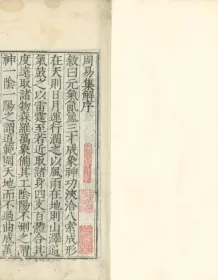 周易集解序
敘曰元氣氤氳三才成象神功浹洽八索成形
在天則日月運行潤之以風雨在地則山澤通
氣鼓之以雷霆至若近取諸身四支百體合其
度遠取諸物森羅萬象備其工陰陽不測之謂
神一陰一陽之謂道範圍天地而不過曲成萬